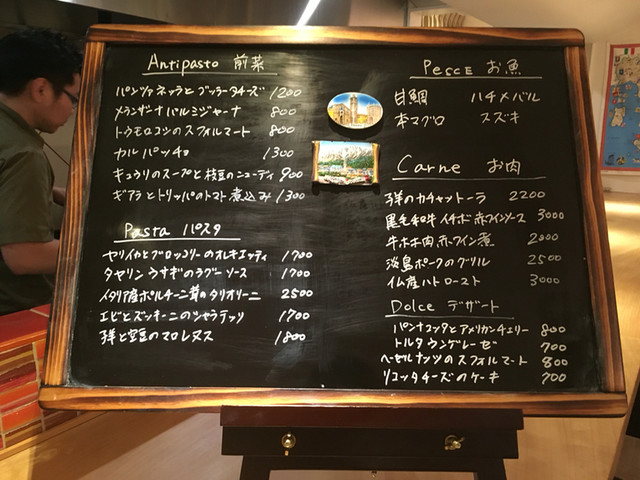 Antipasto 前菜
パンツァネッラとブッラータチーズ 1200
メランザーナパルミジャーナ 800
トウモロコシのスフォルマート 800
カルパッチョ 1300
キュウリのスープと枝豆のニョーディ 900
ギアラとトリッパのトマト煮込み 1300
Pasta パスタ
ヤリイカとブロッコリーのオレキエッティ 1700
タヤリン うさぎのラグーソース 1700
イタリア産ポルチーニ茸のタリオリーニ 2500
エビとズッキーニのシャラテッリ 1700
子羊と空豆のマロレヌス 1800
Pesce お魚
甘鯛 ハチメバル
本マグロ スズキ
Carne お肉
子羊のカチャットーラ 2200
黒毛和牛イチボ赤ワインソース 3000
牛ホホ肉赤ワイン煮 2000
淡島ポークのグリル 2500
仏産ハトロースト 3000
Dolce デザート
パンナコッタとアメリカンチェリー 800
トルタウンゲレーゼ 700
ヘーゼルナッツのスフォルマート 800
リコッタチーズのケーキ 700